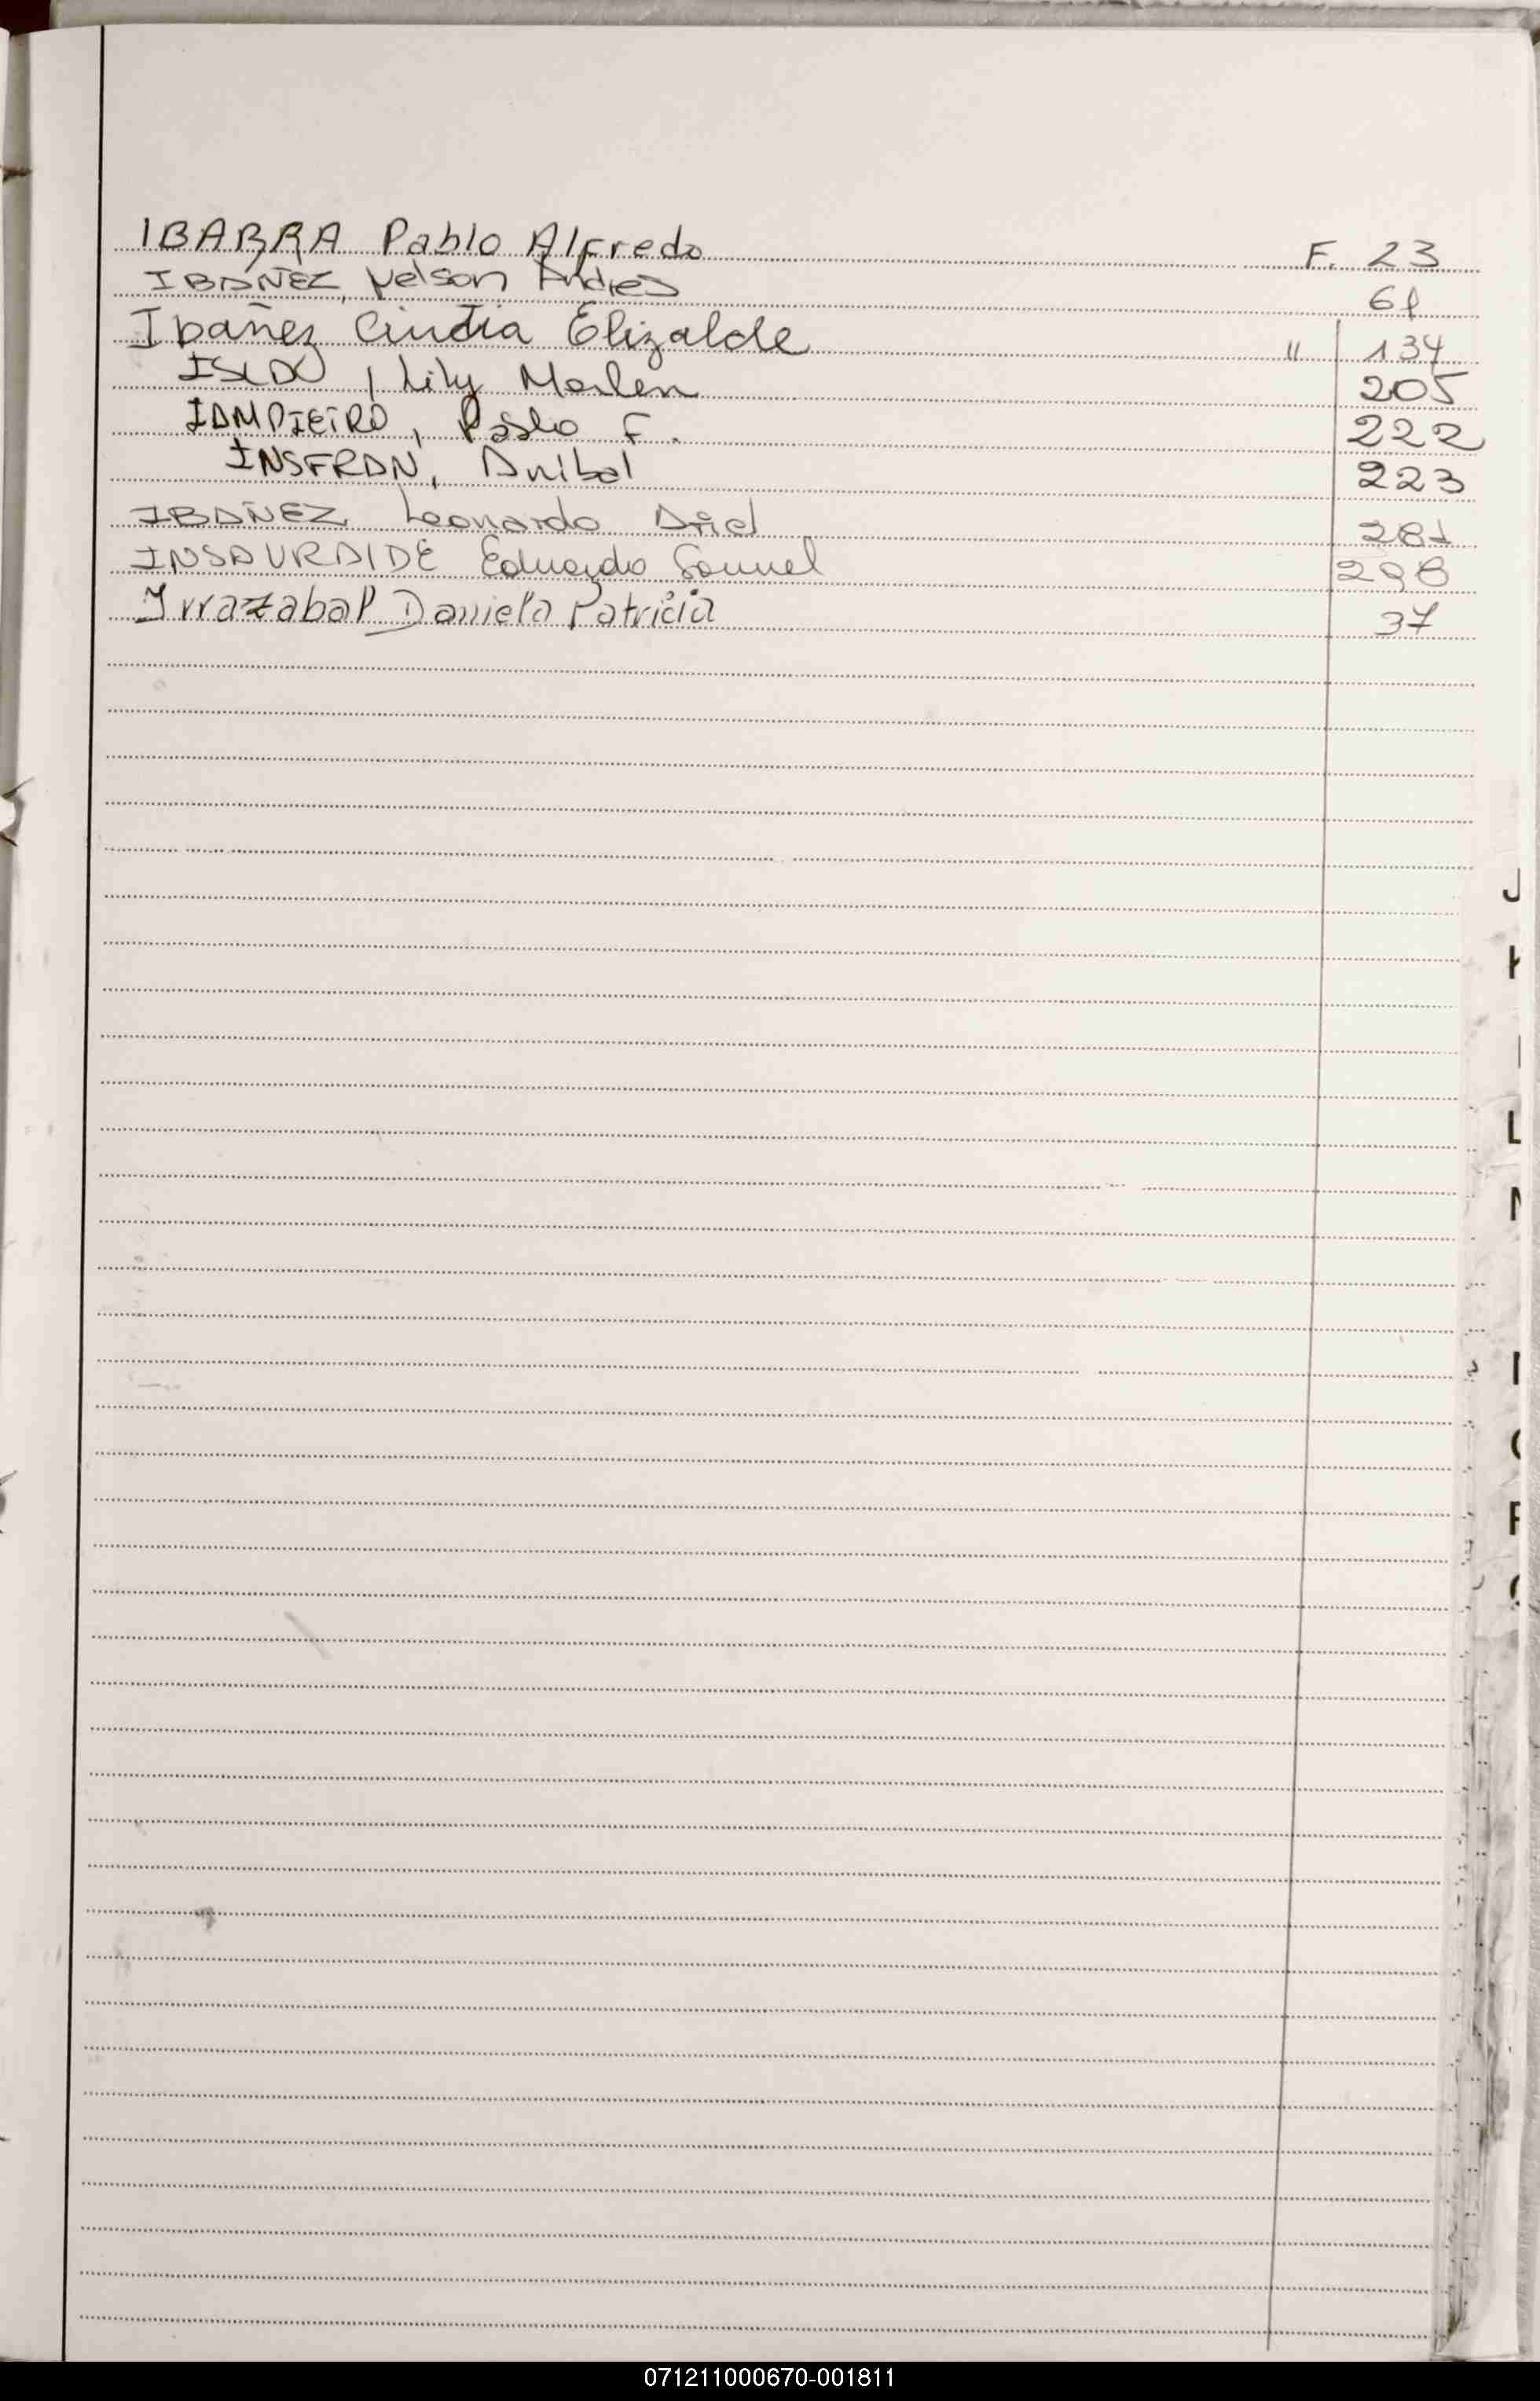 IBARRA Pablo Alfredo F. 23
IBAÑEZ, Nelson Andres 61
Ibañez Cindia Elizalde " 134
ISLDO, Lily Marlen 205
IAMPIETRO, Pablo F. 222
INSFRAN, Anibal 223
IBAÑEZ Leonardo Ariel 281
INSAURALDE Eduardo Samuel 298
Irrazabal Daniela Patricia 37
J
K
L
071211000670-001811